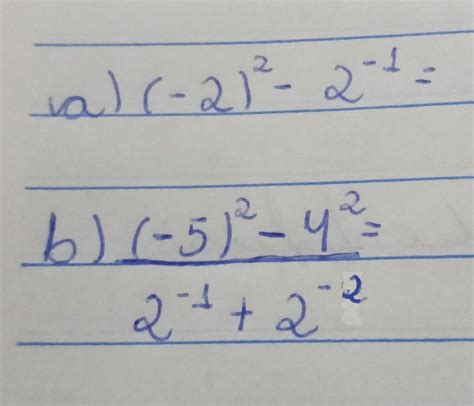 a) (-2)² - 2⁻¹ =
b) (-5)² - 4² =
2⁻¹ + 2⁻²